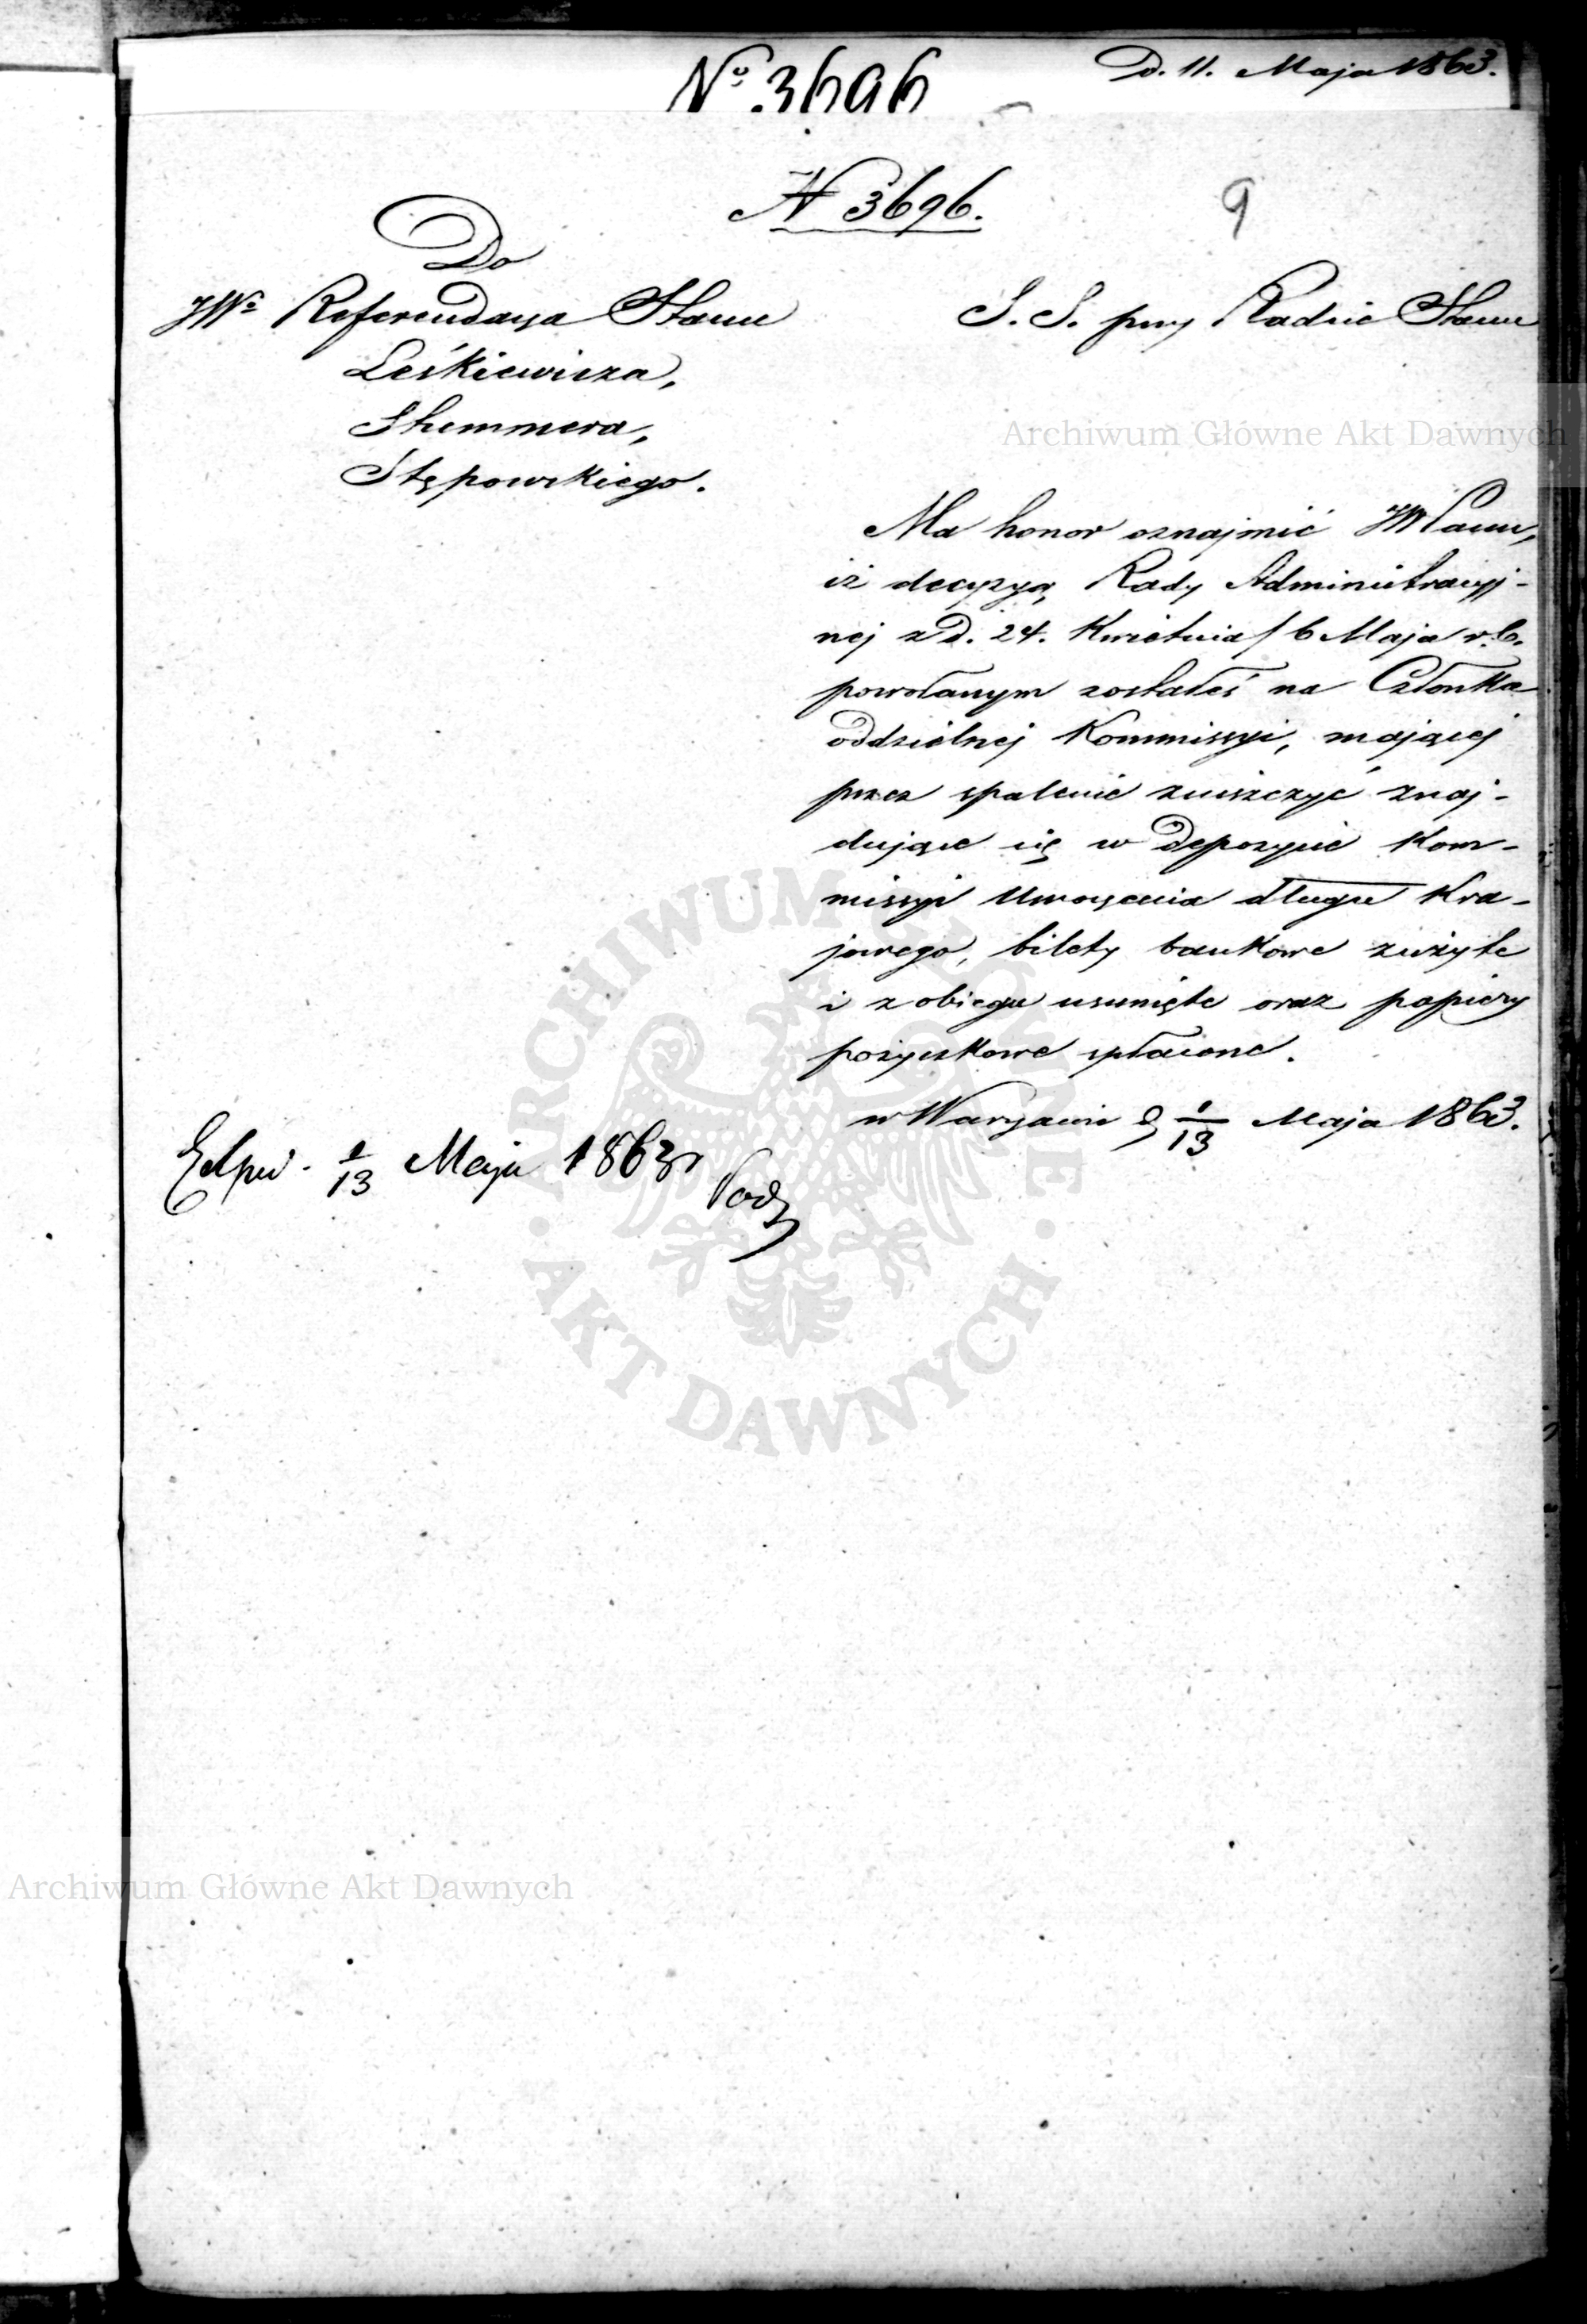 No. 3696
D. 11. Maja 1863.
N 3696.
9
Do
JWo Referendarza Stanu
Leśkiewicza,
Shummera,
Stępowskiego.
S. S. przy Radzie Stanu
Archiwum Główne Akt Dawnych
Ma honor oznajmić JWPanu,
iż decyzyą Rady Administracyj-
nej z d. 24. Kwietnia / 6 Maja r. b.
powołanym zostałeś na Członka
oddzielnej Kommissyi, mającej
przez spalenie zniszczyć znaj-
dujące się w depozycie Kom-
missyi Umorzenia długu Kra-
jowego, bilety bankowe zużyte
i z obiegu usunięte oraz papiery
pożyczkowe spłacone.
w Warszawie d. 1/13 Maja 1863.
Exped. 1/13 Maja 1863 r
ARCHIWUM GŁÓWNE
AKT DAWNYCH
Archiwum Główne Akt Dawnych